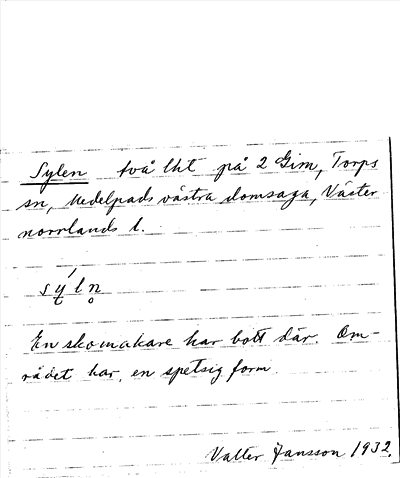 Sylen två lht på 2 Gim, Torps
sn, Medelpads västra domsaga, Väster
norrlands l.
sý̨ln̥
En skomakare har bott där. Om-
rådet har en spetsig form.
Valter Jansson 1932.